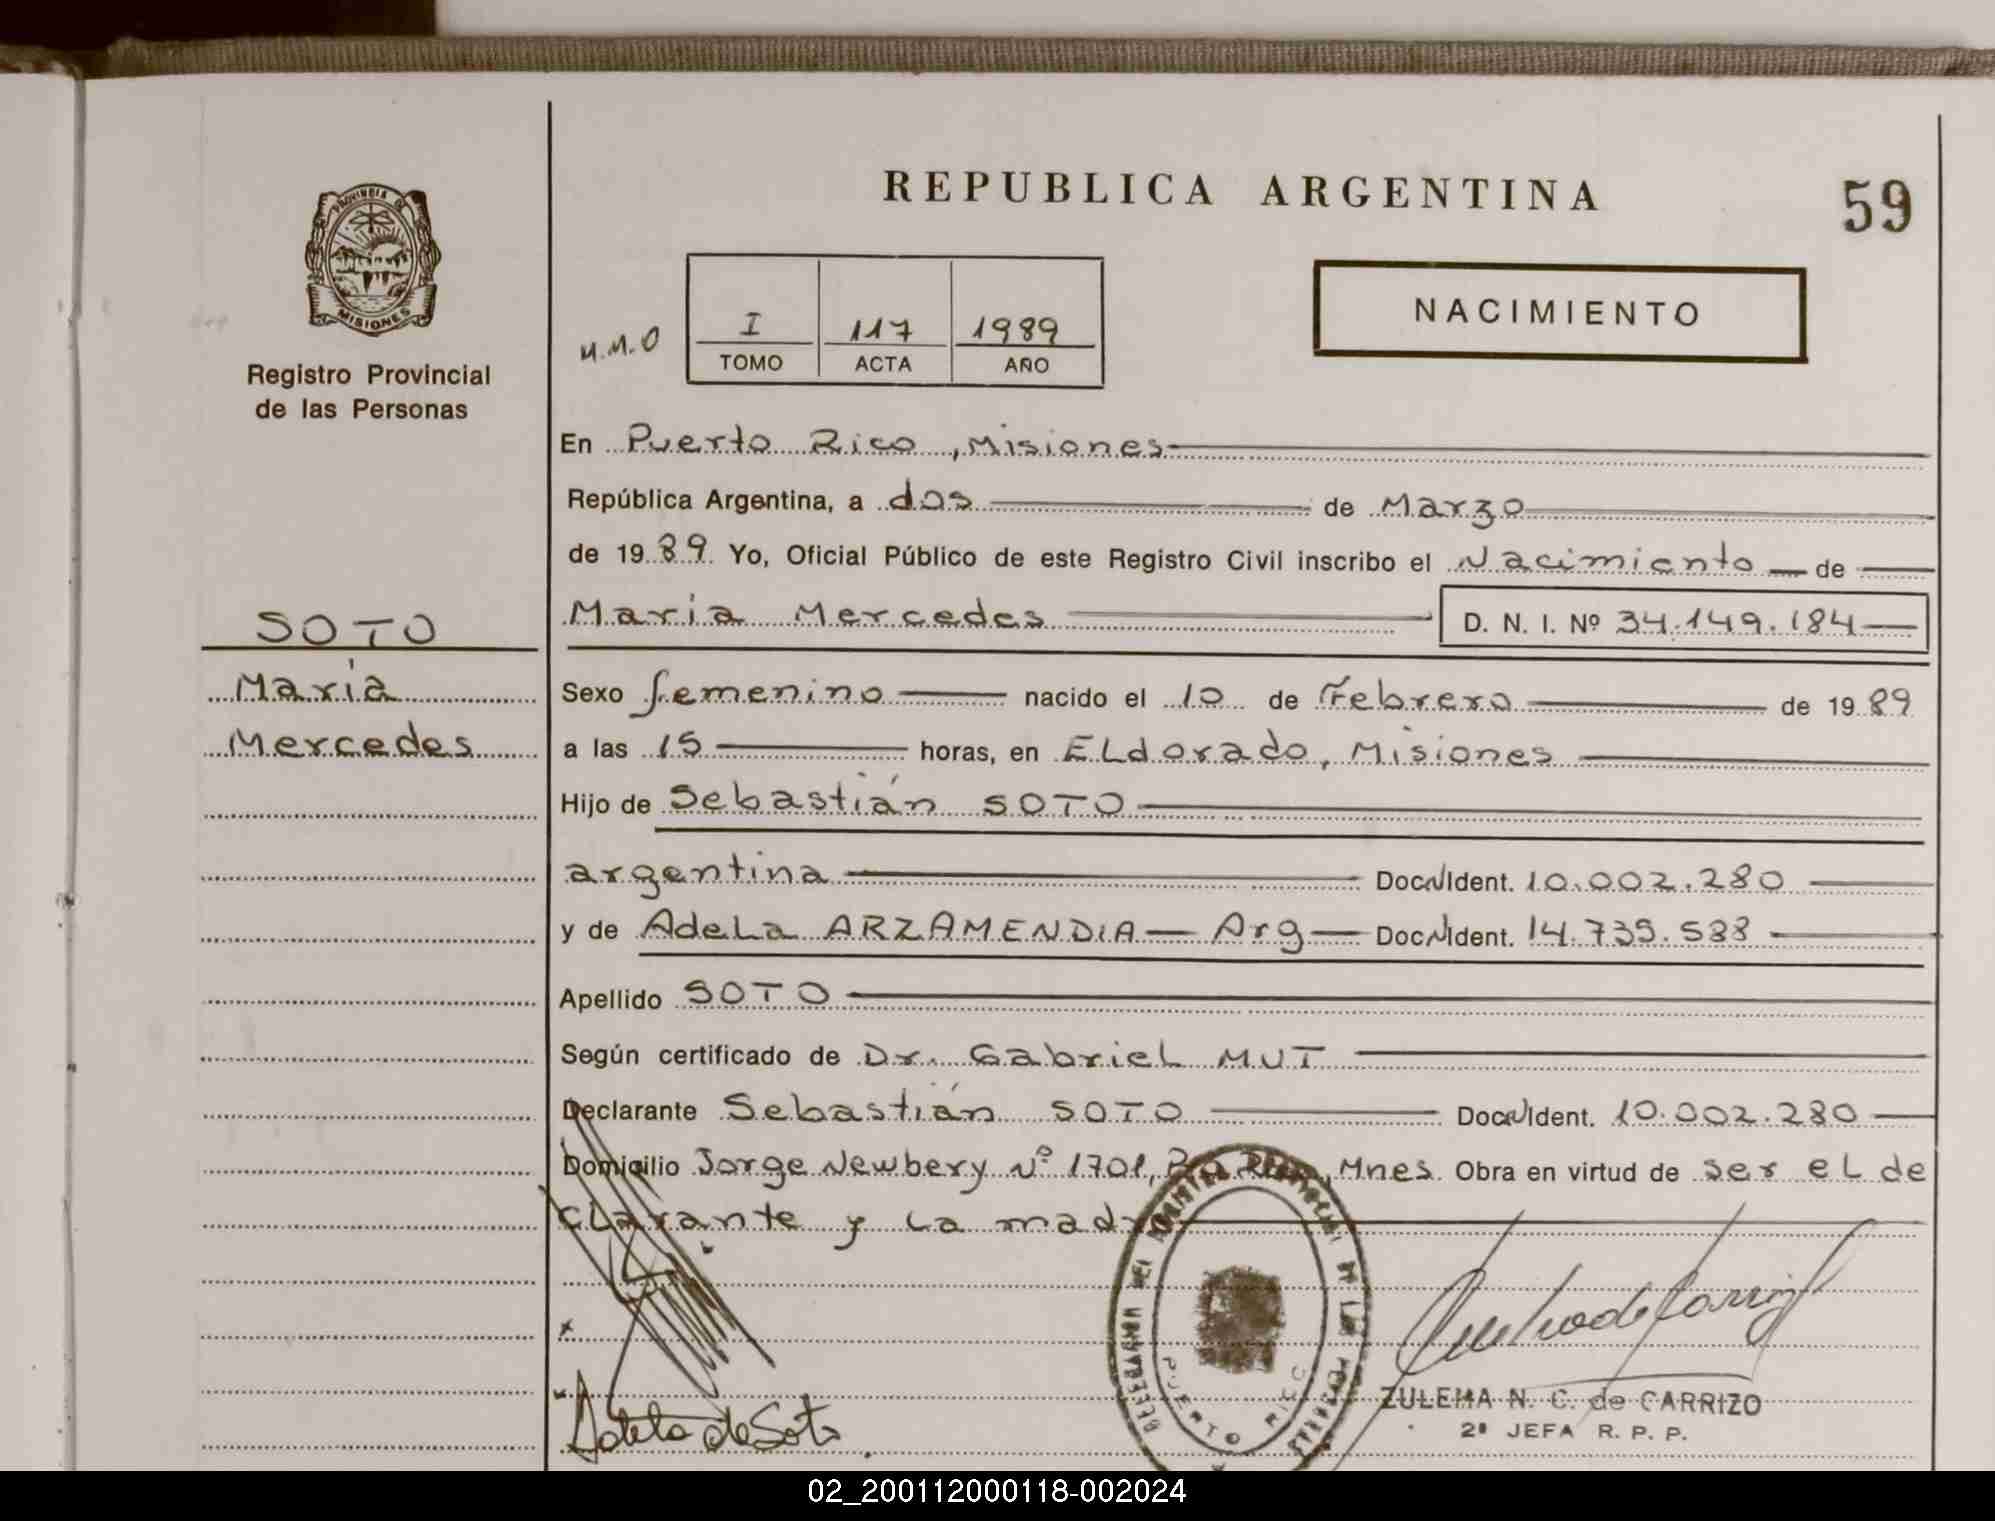 REPUBLICA ARGENTINA
59
PROVINCIA DE
MISIONES
Registro Provincial
de las Personas
M.M.O
I 117 1989
TOMO ACTA AÑO
NACIMIENTO
En Puerto Rico, Misiones
República Argentina, a dos de Marzo
de 1989 Yo, Oficial Público de este Registro Civil inscribo el Nacimiento de
Maria Mercedes D. N. I. Nº 34.149.184
SOTO
María
Mercedes
Sexo femenino nacido el 10 de Febrero de 1989
a las 15 horas, en ELdorado, Misiones
Hijo de Sebastián SOTO
argentina Doc. N Ident. 10.002.280
y de AdeLa ARZAMENDIA Arg Doc. N Ident. 14.735.588
Apellido SOTO
Según certificado de Dr. GabrieL MUT
Declarante Sebastián SOTO Doc. N Ident. 10.002.280
Domicilio Jorge Newbery Nº 1701, Mnes. Obra en virtud de ser eL de
cLarante y La madre
Adela de Soto
PUERTO RICO
ZULEMA N. C. de CARRIZO
2ª JEFA R. P. P.
02_200112000118-002024